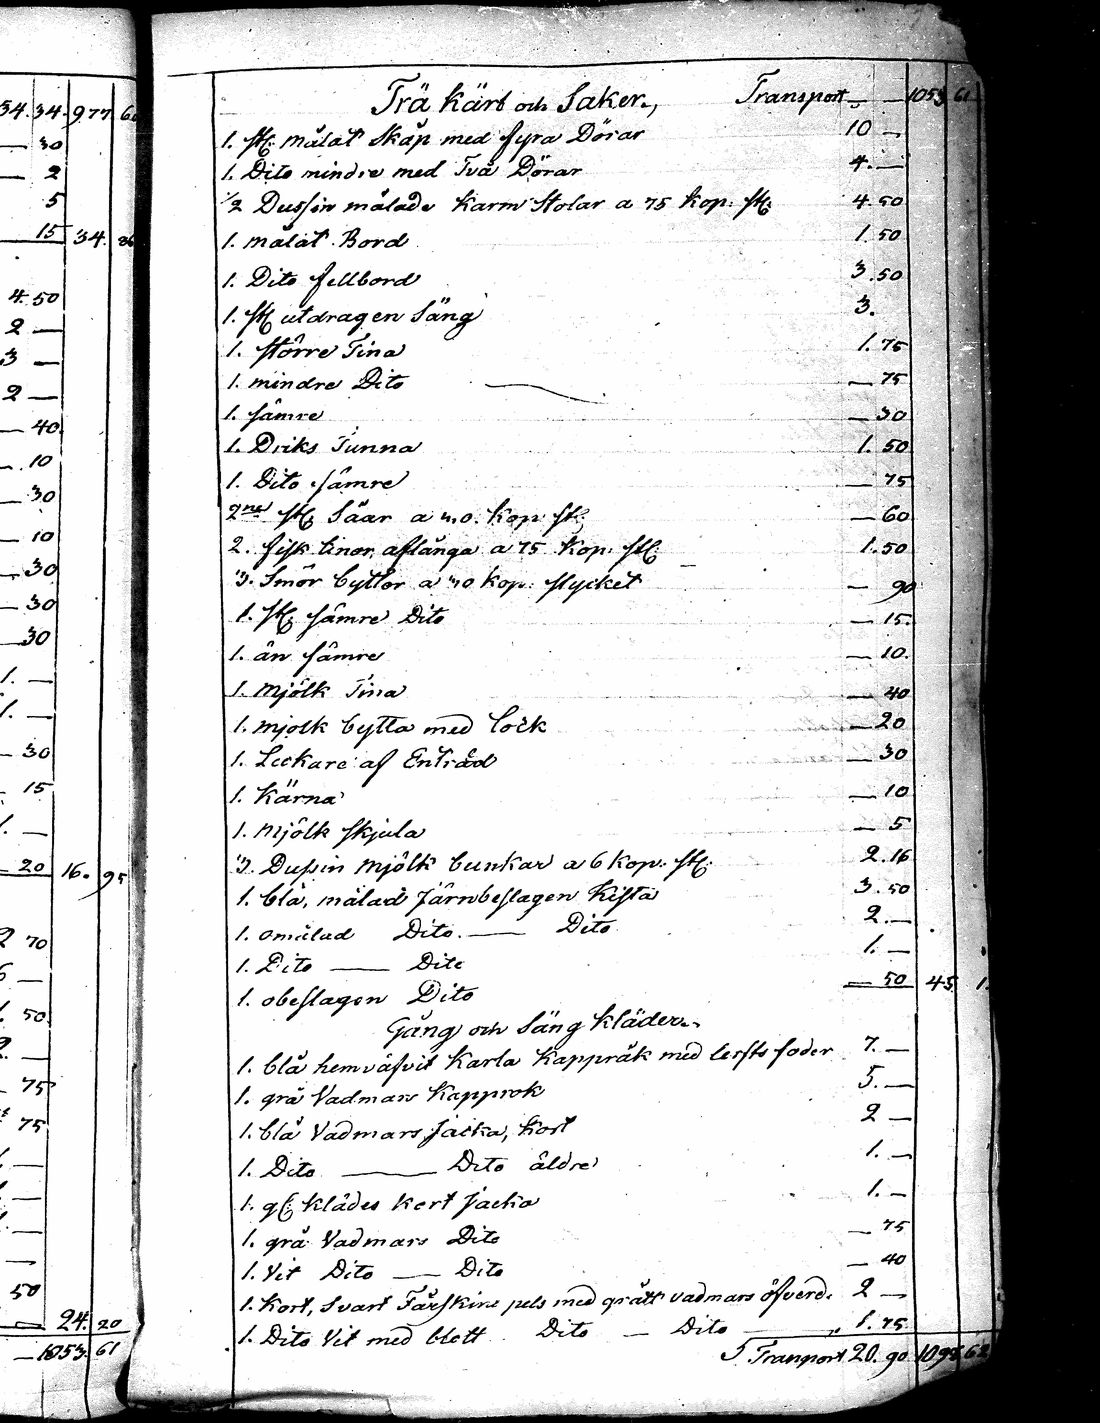 34. 34. 977 6
— 30
— 2
5
15 34. 86
4. 50
2 —
3 —
2 —
— 40.
— 10
— 30
— 10
— 30
— 30
— 30
1. —
1. —
— 30
15
1. —
— 20 16. 95
2 70
6 —
1. 50
2. —
75
75
1. —
1. —
1. —
—
50
— 24. 20
— 1053. 61
Trä Kärl och Saker., Transport — — 1053 61
1. st: målat Skåp med fyra Dörar 10 —
1. Dito mindre med Två Dörar 4. —
1/2 Dussin målade Karm Stolar a 75 kop. st: 4. 50
1. målat Bord 1. 50
1. Dito fellbord 3. 50
1. st utdragen Säng 3.
1. större Tina 1. 75
1. mindre Dito — 75
1. sämre — 30
1. Driks Tunna 1. 50
1. Dito sämre — 75
2ne st: Såar a 30. kop st: — 60
2. fisk tinor aflånga a 75 kop. st: 1. 50
3. Smör byttor a 30 kop. stycket — 90
1. st: sämre Dito — 15.
1. än sämre — 10.
1. Mjölk Tina — 40
1. mjölk bytta med lock — 20
1. Leckare af Enträd — 30
1. Kärna — 10
1. Mjölk skjula — 5
3. Dussin Mjölk bunkar a 6 kop. st: 2. 16
1. blå, målad Järnbeslagen Kista 3. 50
1. omålad Dito. — Dito 2. —
1. Dito — Dito 1. —
1. obeslagen Dito — 50 45 1.
Gång och Säng Kläder.
1. blå hemväfvit Karla Kappråk med lerfts foder 7. —
1. grå Vadmars Kapprok 5. —
1. blå Vadmars Jacka, Kort 2 —
1. Dito — Dito äldre 1. —
1. gl: klädes Kort Jacka 1. —
1. grå Vadmars Dito — 75
1. Vit Dito — Dito — 40
1. Kort, Svart Fårskins pels med grått vadmars öfverd. 2 —
1. Dito Vit med blått Dito — Dito — 1. 75
T Transport 20. 90 1098 62